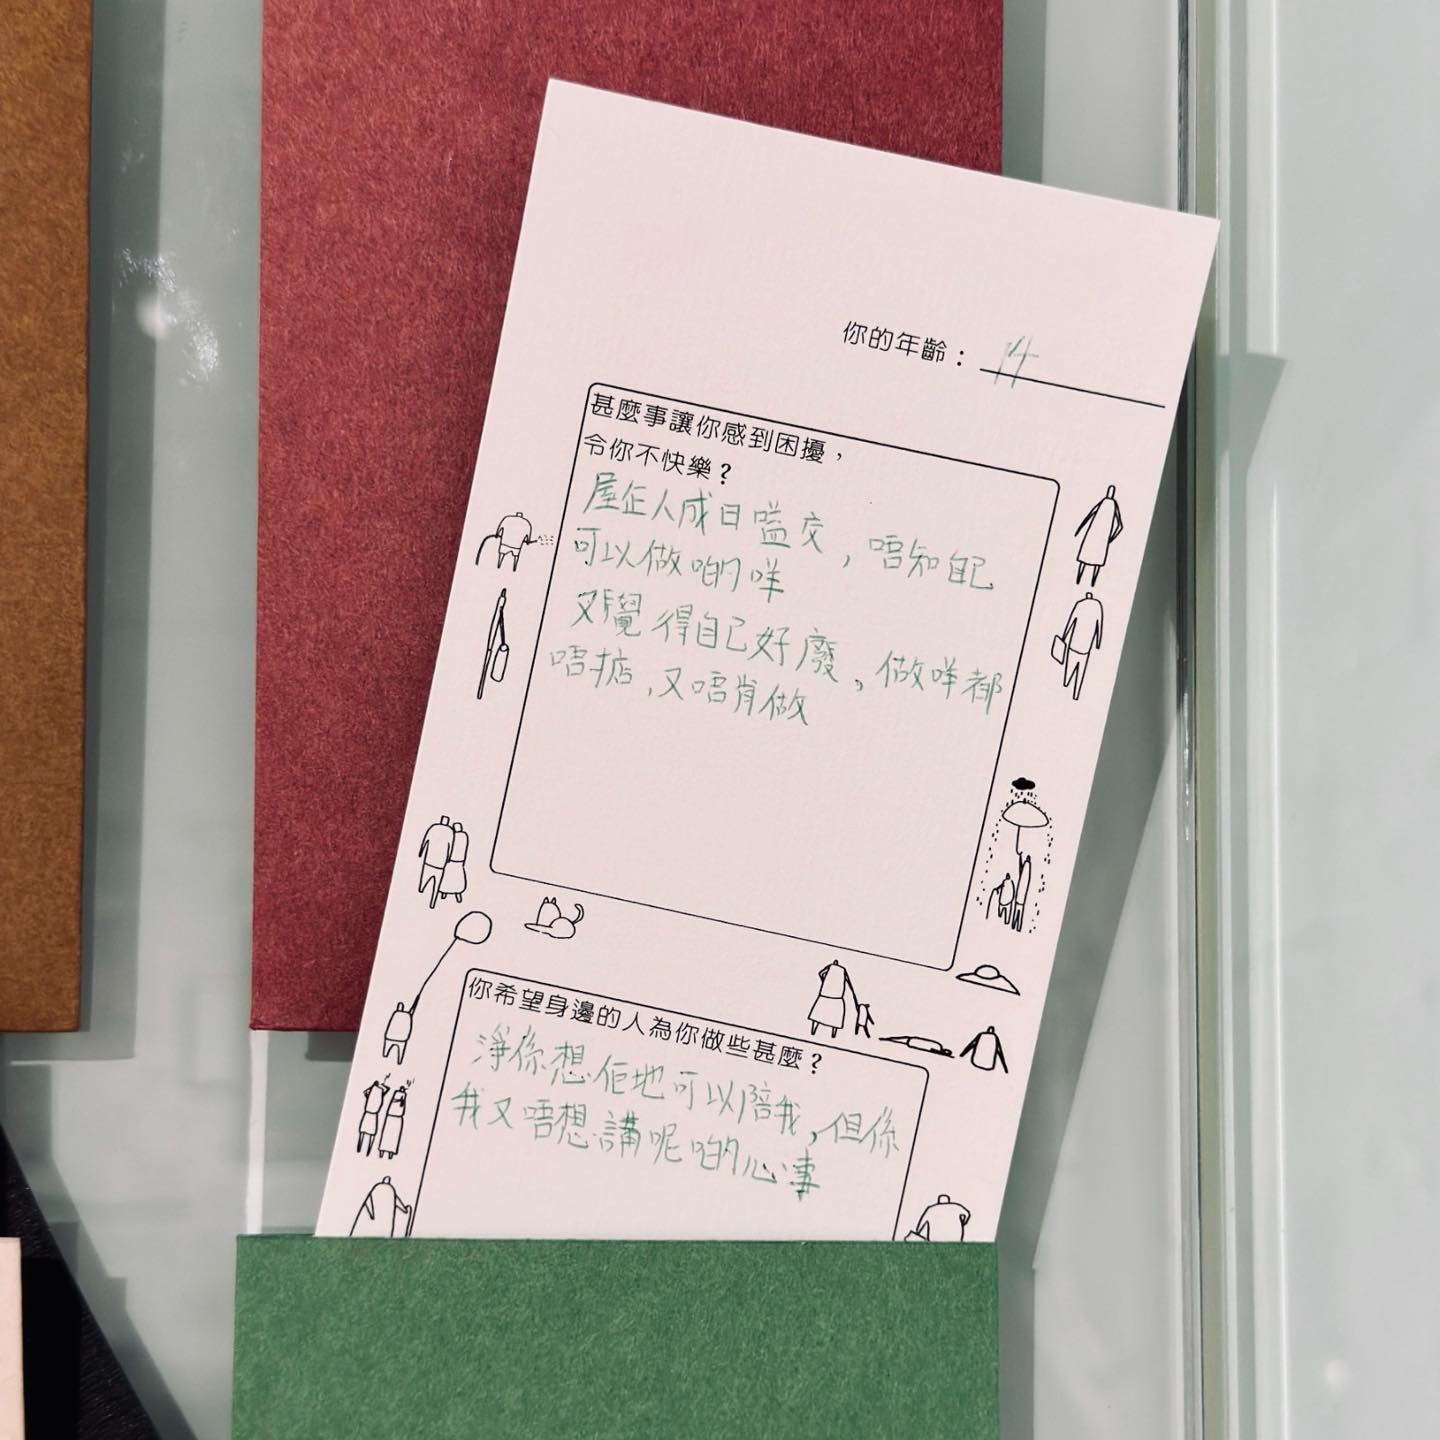 你的年齡：14
甚麼事讓你感到困擾，
令你不快樂？
屋企人成日嗌交，唔知自己
可以做啲咩
又覺得自己好廢，做咩都
唔掂，又唔肯做
你希望身邊的人為你做些甚麼？
淨係想佢地可以陪我，但係
我又唔想講呢啲心事